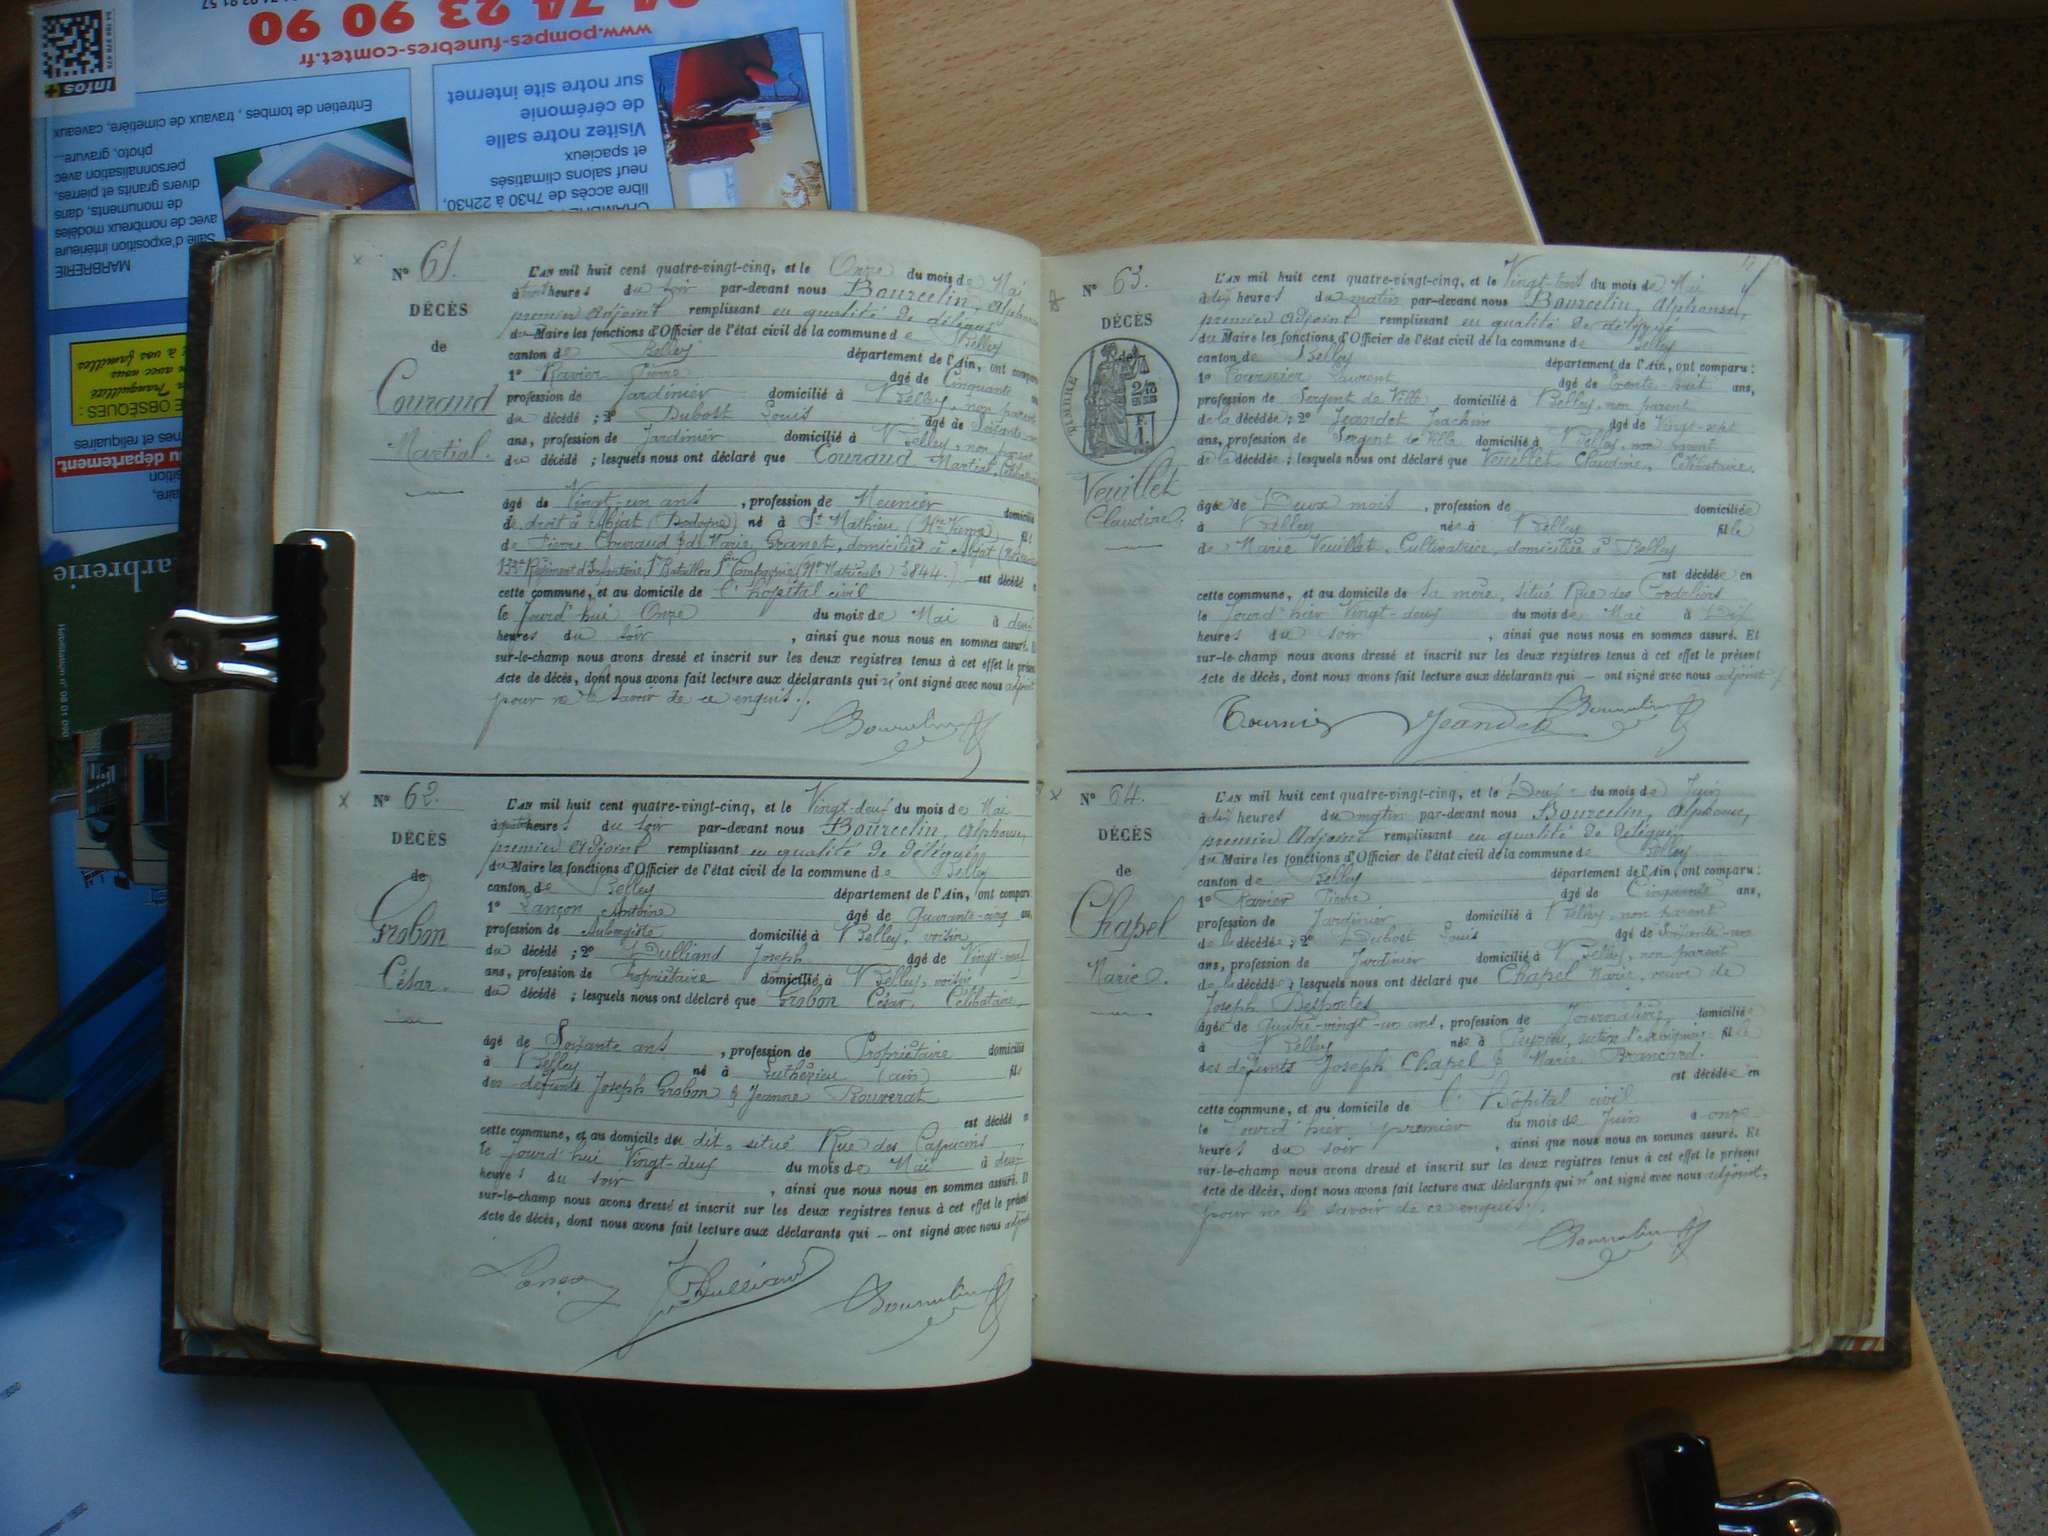 04 74 23 90 90
www.pompes-funebres-comtet.fr
infos+
Entretien de tombes, travaux de cimetière, caveaux
Visitez notre salle
de cérémonie
sur notre site internet
libre accès de 7h30 à 22h30,
neuf salons climatisés
et spacieux
MARBRERIE
Salle d'exposition intérieure
avec de nombreux modèles
de monuments, dans
divers granits et pierres,
personnalisation avec
photo, gravure...
N° 61.
DÉCÈS
de
Couraud
Martial.
L'AN mil huit cent quatre-vingt-cinq, et le Onze du mois de Mai
à heures du soir par-devant nous Bourcelin, Alphonse
premier adjoint remplissant en qualité de délégué
du Maire les fonctions d'Officier de l'état civil de la commune de Belley
canton de Belley département de l'Ain, ont comparu
1° Ravier Pierre âgé de Cinquante
profession de Jardinier domicilié à Belley, non parent
du décédé ; 2° Dubost Louis âgé de Soixante-un
ans, profession de Jardinier domicilié à Belley, non parent
du décédé ; lesquels nous ont déclaré que Couraud Martial, Célibataire
âgé de Vingt-un ans, profession de Meunier domicilié
de droit à Abjat (Dordogne) né à St Mathieu (Hte Vienne) fil
de Pierre Couraud & de Marie Granet, domiciliés à Abjat
133e Régiment d'Infanterie, 1er Bataillon 1re Compagnie (No Matricule) 3844.) est décédé
cette commune, et au domicile de l'hôpital civil
le jourd'hui Onze du mois de Mai à deux
heures du soir, ainsi que nous nous en sommes assuré. E
sur-le-champ nous avons dressé et inscrit sur les deux registres tenus à cet effet le présent
Acte de décès, dont nous avons fait lecture aux déclarants qui n'ont signé avec nous adjoint
pour ne le savoir de ce enquis.
Bourcelin
N° 62.
DÉCÈS
de
Grobon
César.
L'AN mil huit cent quatre-vingt-cinq, et le Vingt-deux du mois de Mai
à quatre heures du soir par-devant nous Bourcelin, Alphonse,
premier adjoint remplissant en qualité de délégué
du Maire les fonctions d'Officier de l'état civil de la commune de Belley
canton de Belley département de l'Ain, ont comparu
1° Lançon Antoine âgé de Quarante-cinq ans,
profession de Aubergiste domicilié à Belley, voisin
du décédé ; 2° Dulliand Joseph âgé de Vingt-neuf
ans, profession de Propriétaire domicilié à Belley, voisin
du décédé ; lesquels nous ont déclaré que Grobon César, Célibataire
âgé de Soixante ans, profession de Propriétaire domicilié
à Belley né à Luthézieu (Ain) fils
des défunts Joseph Grobon & Jeanne Rouverat
est décédé en
cette commune, et au domicile du dit, situé Rue des Capucins
le jourd'hui Vingt-deux du mois de Mai à deux
heures du soir, ainsi que nous nous en sommes assuré. E
sur-le-champ nous avons dressé et inscrit sur les deux registres tenus à cet effet le présent
Acte de décès, dont nous avons fait lecture aux déclarants qui — ont signé avec nous adjoint
Lançon Dulliand Bourcelin
N° 63.
DÉCÈS
de
TIMBRE
Veuillet
Claudine.
L'AN mil huit cent quatre-vingt-cinq, et le Vingt-trois du mois de Mai
à dix heures du matin par-devant nous Bourcelin, Alphonse,
premier adjoint remplissant en qualité de délégué
du Maire les fonctions d'Officier de l'état civil de la commune de Belley
canton de Belley département de l'Ain, ont comparu :
1° Tournier Laurent âgé de Trente-huit ans,
profession de Sergent de Ville domicilié à Belley, non parent
de la décédée ; 2° Jeandet Joachim âgé de Vingt-sept
ans, profession de Sergent de Ville domicilié à Belley, non parent
de la décédée ; lesquels nous ont déclaré que Veuillet Claudine, Célibataire.
âgée de Deux mois, profession de domiciliée
à Belley née à Belley fille
de Marie Veuillet, Cultivatrice, domiciliée à Belley
est décédée en
cette commune, et au domicile de sa mère, situé Rue des Cordeliers
le jourd'hier Vingt-deux du mois de Mai à Dix
heures du soir, ainsi que nous nous en sommes assuré. Et
sur-le-champ nous avons dressé et inscrit sur les deux registres tenus à cet effet le présent
Acte de décès, dont nous avons fait lecture aux déclarants qui — ont signé avec nous adjoint
Tournier Jeandet Bourcelin
N° 64.
DÉCÈS
de
Chapel
Marie.
L'AN mil huit cent quatre-vingt-cinq, et le Deux du mois de Juin
à dix heures du matin par-devant nous Bourcelin, Alphonse,
premier adjoint remplissant en qualité de délégué
du Maire les fonctions d'Officier de l'état civil de la commune de Belley
canton de Belley département de l'Ain, ont comparu :
1° Ravier Pierre âgé de Cinquante ans,
profession de Jardinier domicilié à Belley, non parent
de la décédée ; 2° Dubost Louis âgé de Soixante-un
ans, profession de Jardinier domicilié à Belley, non parent
de la décédée ; lesquels nous ont déclaré que Chapel Marie, veuve de
Joseph Desportes
âgée de Quatre-vingt-un ans, profession de Journalière, domiciliée
à Belley née à Peyrieu, section d' fille
des défunts Joseph Chapel & Marie Brancard.
est décédée en
cette commune, et au domicile de l'Hôpital civil
le jourd'hier premier du mois de Juin à onze
heures du soir, ainsi que nous nous en sommes assuré. Et
sur-le-champ nous avons dressé et inscrit sur les deux registres tenus à cet effet le présent
Acte de décès, dont nous avons fait lecture aux déclarants qui n'ont signé avec nous adjoint,
pour ne le savoir de ce enquis.
Bourcelin